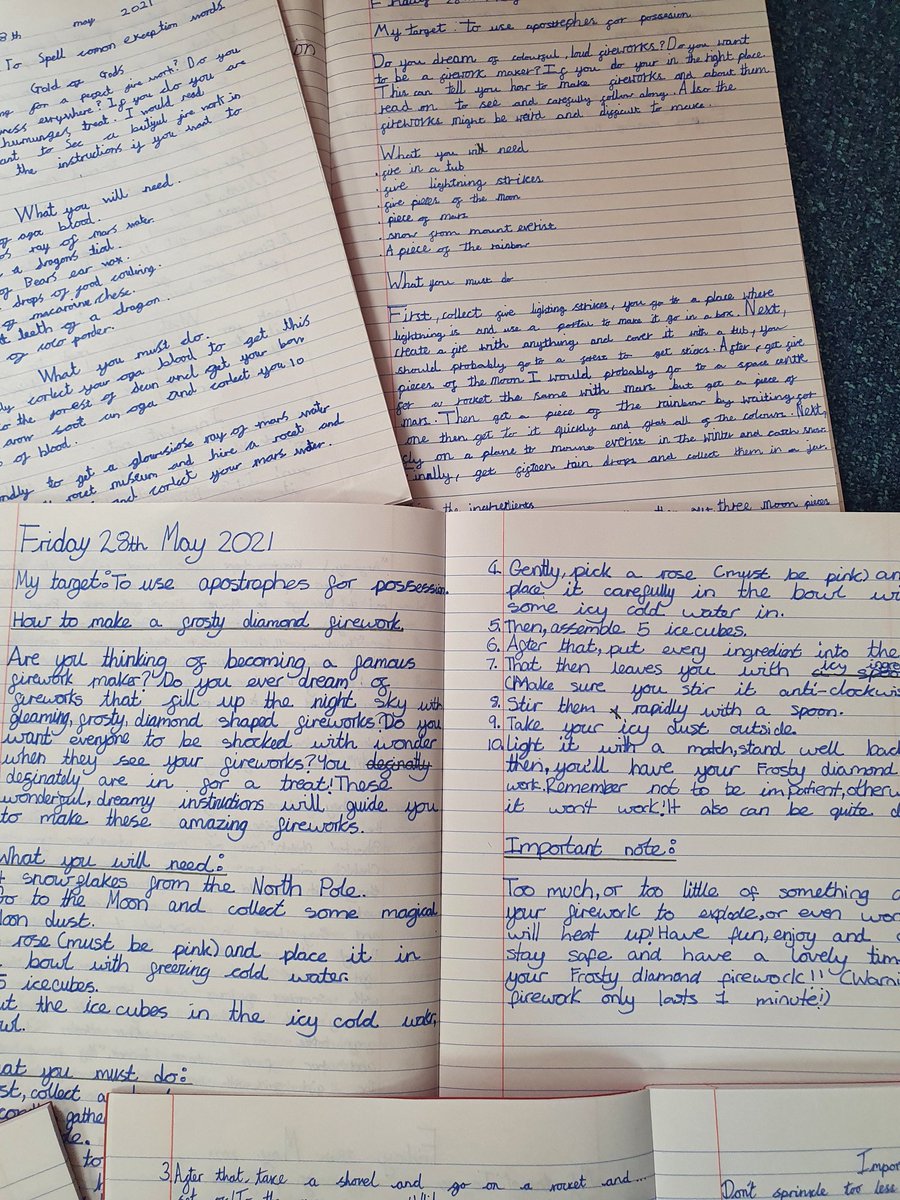 8th may 2021
To Spell comon exception words
Gold of Gods
for a perfect fire work? Do you
everywhere? If you do you are
humunges, treat. I would read
to See a butyful fire work in
the instructions if you want to
What you will need.
of oga blood.
ray of mars water.
a dragons tial.
of Bears ear wax.
drops of food coulring.
of macaronie chese.
teeth of a dragon.
of coco ponder.
What you must do.
corlect your oga blood to get this
to the forest of dean and get your bow
arow soot an oga and corlect you 10
of blood.
to get a glowsiose ray of mars water
rocet museum and hire a rocet and
and corlect your mars water.
My target: To use apostrephes for possesion
Do you dream of colourful, loud fireworks? Do you want
to be a firework maker? If you do your in the right place.
This can tell you how to make fireworks and about them
read on to see and carefully follow along. Also the
fireworks might be weird and difficult to make.
What you will need
. fire in a tub
. five lightning strikes
. five pieces of the moon
. piece of mars
. snow from mount everist
. A piece of the rainbow
What you must do
First, collect five lighting strikes, you go to a place where
lightning is and use a portal to make it go in a box. Next,
create a fire with anything and cover it with a tub, you
should probably go to a forest to get sticks. After, get five
pieces of the moon I would probably go to a space centre
for a rocket the same with mars but get a piece of
mars. Then get a piece of the rainbow by waiting for
one then get to it quickly and grab all of the colours. Next,
on a plane to mount everist in the winter and catch snow
inally, get fifteen rain drops and collect them in a jar
the ingredients
three moon pieces
Friday 28th May 2021
My target: To use apostraphes for possession.
How to make a frosty diamond firework.
Are you thinking of becoming a famous
firework maker? Do you ever dream of
fireworks that fill up the night sky with
gleaming, frosty, diamond shaped fireworks? Do you
want everyone to be shocked with wonder
when they see your fireworks? You definatly
definately are in for a treat! These
wonderful, dreamy instructions will guide you
to make these amazing fireworks.
What you will need:
snowflakes from the North Pole.
to the Moon and collect some magical
dust.
rose (must be pink) and place it in
bowl with freezing cold water.
5 icecubes.
the icecubes in the icy cold water,
you must do:
collect a
4. Gently, pick a rose (must be pink) an
place it carefully in the bowl wi
some icy cold water in.
5. Then, assemble 5 icecubes.
6. After that, put every ingredient into the
7. That then leaves you with icy
(Make sure you stir it anti-clockwis
8. Stir them rapidly with a spoon.
9. Take your icy dust outside.
10. light it with a match, stand well back
then, you'll have your Frosty diamond
work. Remember not to be impatient, otherw
it won't work! It also can be quite d
Important note:
Too much, or too little of something
your firework to explode, or even wor
will heat up! Have fun, enjoy and
stay safe and have a lovely time
your Frosty diamond firework!! (Warni
firework only lasts 1 minute!)
3. After that, take a shovel and go on a rocket and...
Impor
Don't sprinkle too less